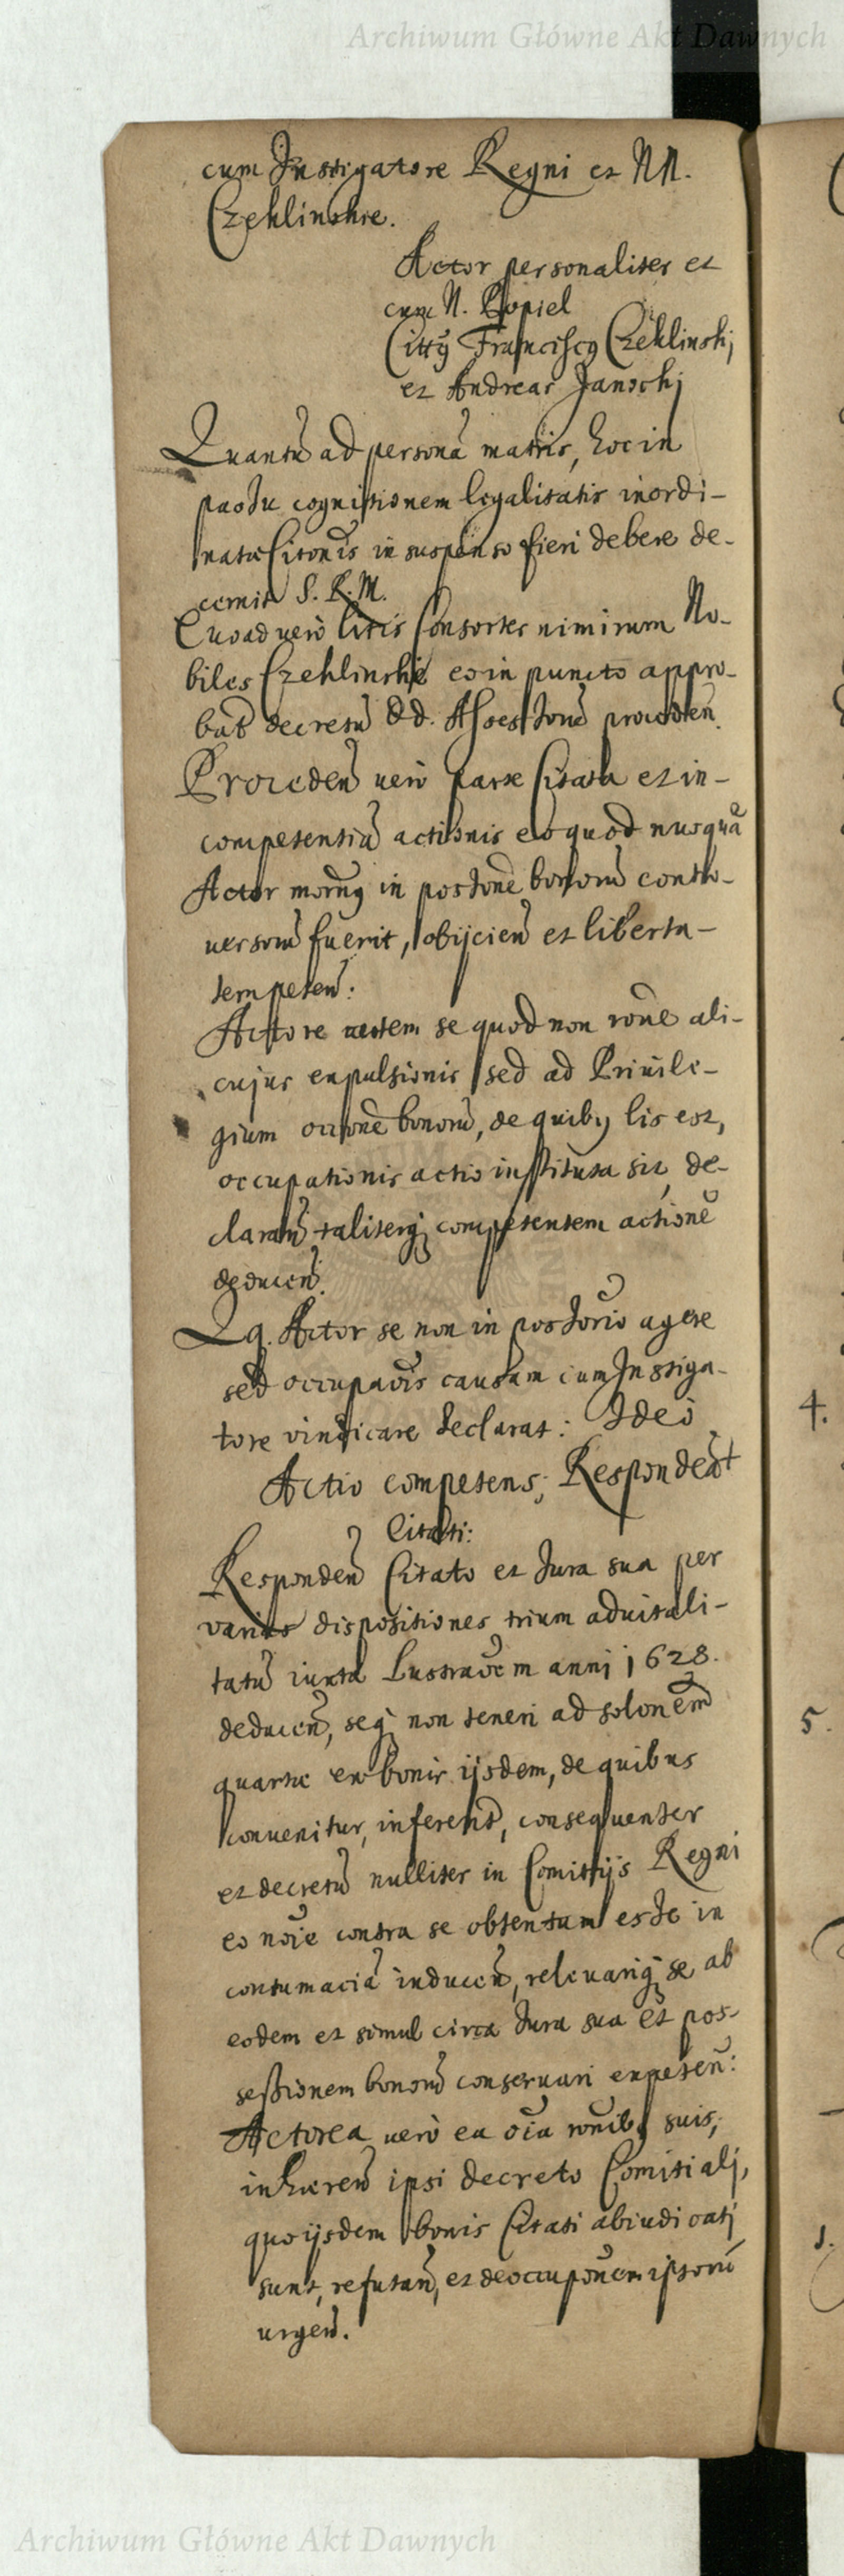 Archiwum Główne Akt Dawnych
cum Instigatore Regni et NN.
Czechlinskie.
Actor personaliter et
cum N. Popiel
Citti Franciscq Czechlinskj
et Andreas Janockj
Quantũ ad personã matris, hoc in
passu cognitionem legalitatis inordi-
natæ Citonis in suspenso fieri debere de-
cernit S. R. M.
Quoad vero litis Consortes nimirum No-
biles Czechlinskie eo in puncto appro-
bat decretũ DD. Assessorũ
vero parte Citata et in-
competentiã actionis eo quod nusquã
Actor in possionẽ bonorũ contro-
versorũ fuerit, obijcien et liberta-
tem peten:
Actore autem se quod non rõne ali-
cujus expulsionis sed ad Privile-
gium bonorũ, de quibq lis est,
occupationis actio instituta sit, de-
claran taliterq competentem actionẽ
deducen.
Qq. Actor se non in possorio agere
sed causam cum Instiga-
tore vindicare declarat: Ideo
Actio competens, Respondeat
Citati:
Responden Citato et Jura sua per
varias dispositiones trium advitali-
tatũ iuxta Lustraõem anni 1628.
deducen, seq non teneri ad solonem
quartæ ex bonis ijsdem, de quibus
convenitur, inferent, consequenter
et decretũ nulliter in Comitijs Regni
eo noĩe contra se obtentum esse in
contumaciã inducen, relevariq se ab
eodem et simul circa Jura sua et pos-
sessionem bonorũ conservari expeten:
Actorea vero ea oĩa rõnibq suis,
inhæren ipsi decreto Comitialj,
quo ijsdem bonis Citati abiudicatj
sunt, refutan, et deoccuponem ipsorũ
urgen.
4.
5.
Archiwum Główne Akt Dawnych